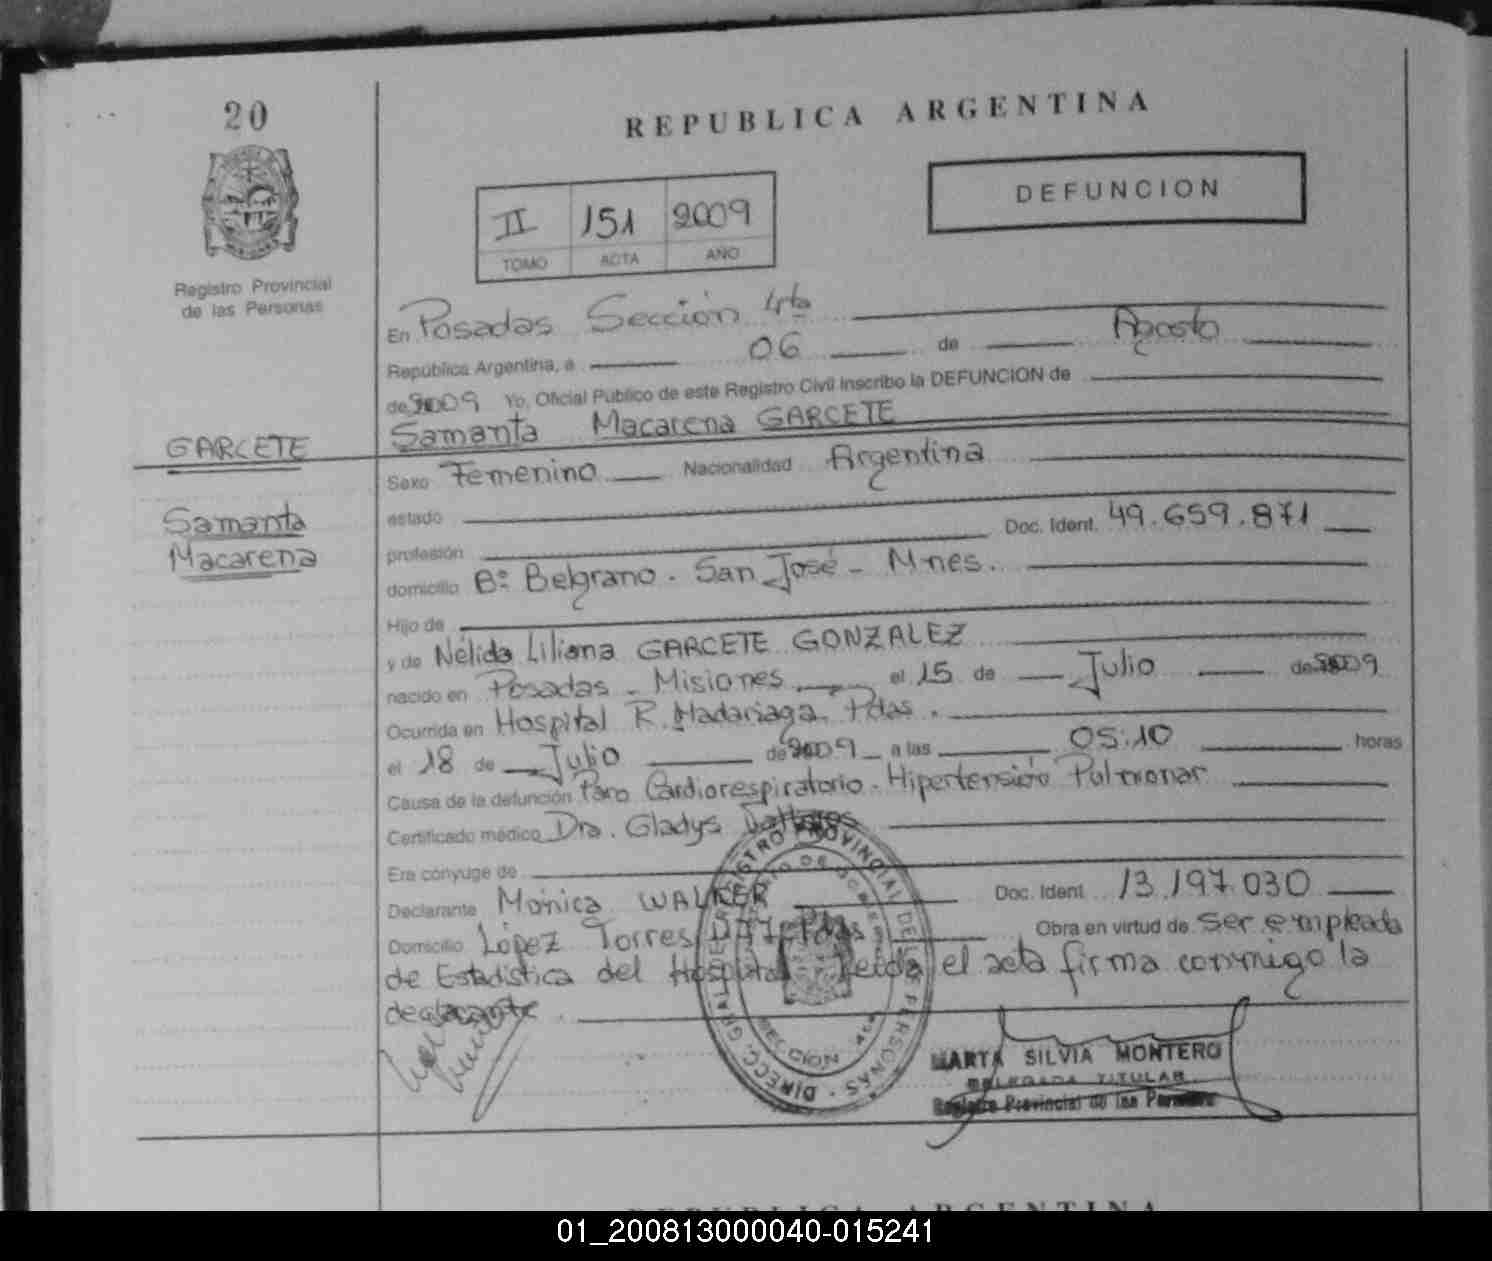 20
REPUBLICA ARGENTINA
DEFUNCION
II 151 2009
TOMO ACTA AÑO
Registro Provincial
de las Personas
En Posadas Sección 4ta
República Argentina, a 06 de Agosto
de 2009 Yo, Oficial Público de este Registro Civil inscribo la DEFUNCION de
Samanta Macarena GARCETE
GARCETE
Samanta
Macarena
Sexo Femenino Nacionalidad Argentina
estado
profesión Doc. Ident. 49.659.871
domicilio Bº Belgrano. San José - Mnes.
Hijo de
y de Nélida Liliana GARCETE GONZALEZ
nacido en Posadas - Misiones el 15 de Julio de 2009
Ocurrida en Hospital R. Madariaga. Pdas.
el 18 de Julio de 2009 a las 05:10 horas
Causa de la defunción Paro Cardiorespiratorio - Hipertensión Pulmonar
Certificado médico Dra. Gladys
Era cónyuge de
Declarante Mónica WALKER Doc. Ident. 13.197.030
Domicilio López Torres Pdas Obra en virtud de ser empleada
de Estadística del Hospital Leída el acta firma conmigo la
declarante
DIRECC. GRAL. REGISTRO PROVINCIAL DE LAS PERSONAS
SECCION 4ta
MARTA SILVIA MONTERO
DELEGADA TITULAR
Registro Provincial de las Personas
REPUBLICA ARGENTINA
01_200813000040-015241